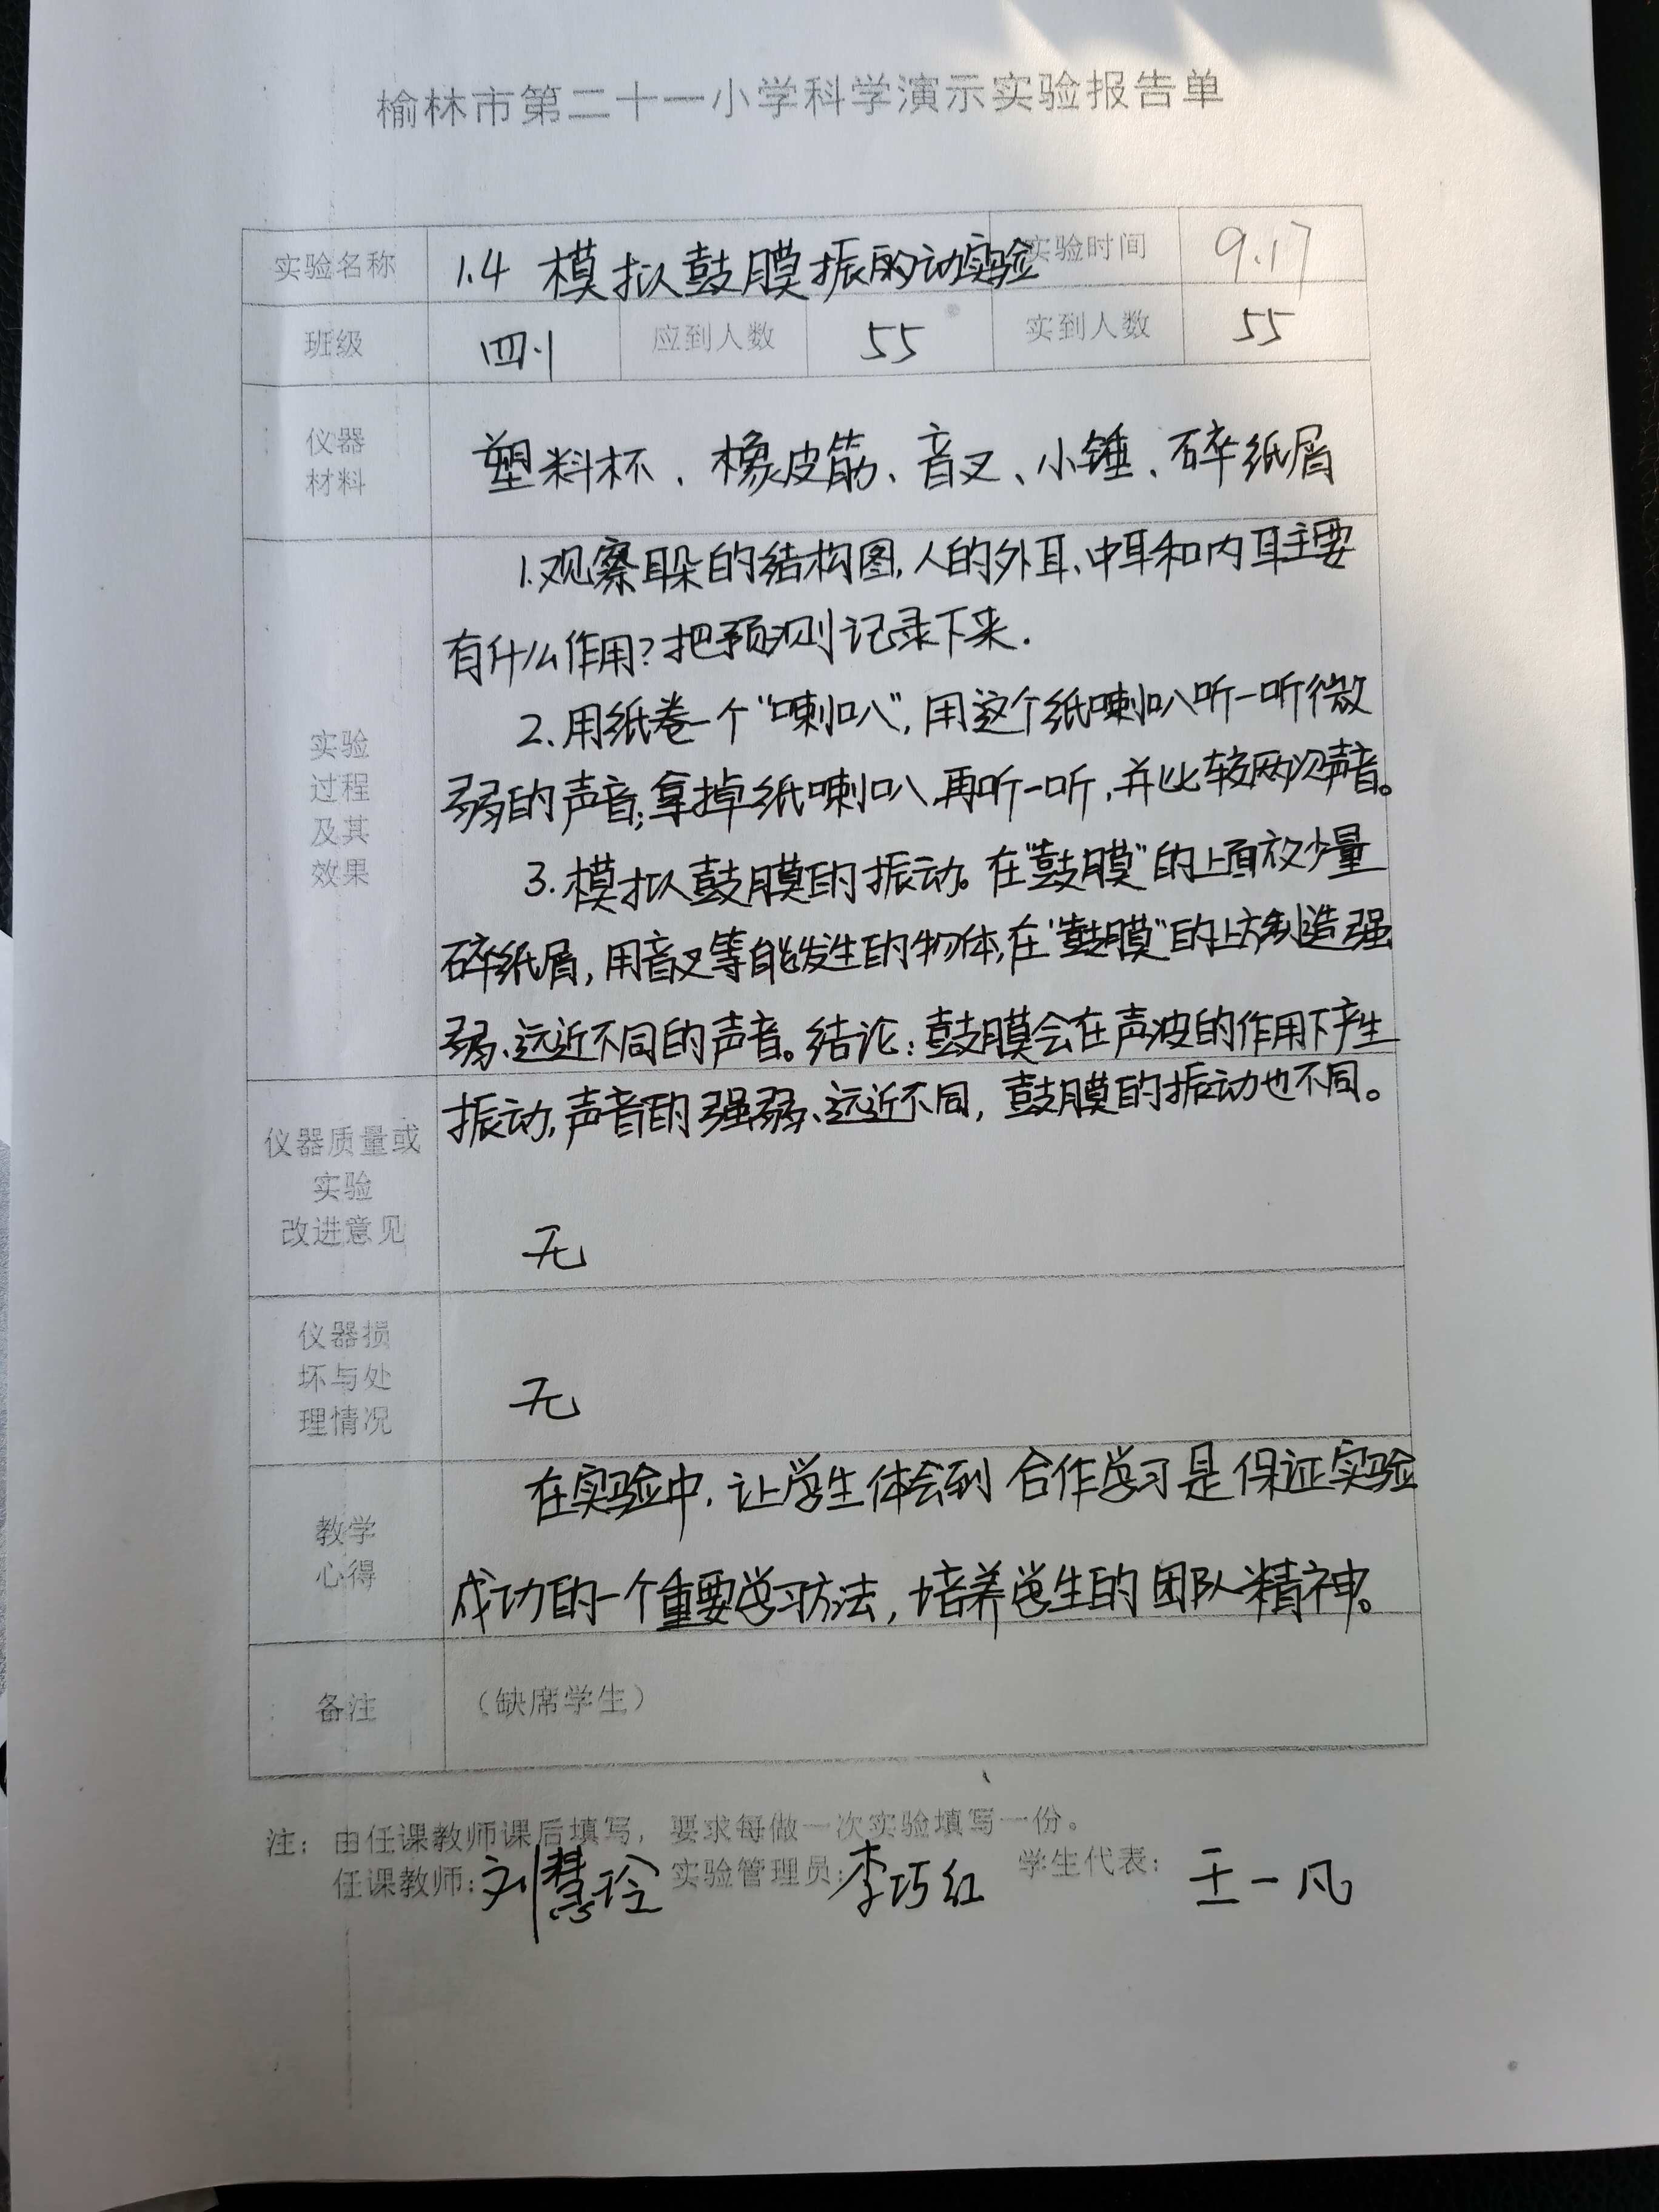 榆林市第二十一小学科学演示实验报告单
实验名称 1.4 模拟鼓膜振的动实验 实验时间 9.17
班级 四.1 应到人数 55 实到人数 55
仪器
材料
塑料杯、橡皮筋、音叉、小锤、碎纸屑
实验
过程
及其
效果
1.观察耳朵的结构图,人的外耳、中耳和内耳主要
有什么作用?把预测记录下来.
2.用纸卷一个“喇叭”,用这个纸喇叭听一听微
弱的声音;拿掉纸喇叭,再听一听,并比较两次声音。
3.模拟鼓膜的振动。在“鼓膜”的上面放少量
碎纸屑,用音叉等能发生的物体,在“鼓膜”的上方制造强
弱、远近不同的声音。结论:鼓膜会在声波的作用下产生
振动,声音的强弱、远近不同,鼓膜的振动也不同。
仪器质量或
实验
改进意见
无
仪器损
坏与处
理情况
无
教学
心得
在实验中,让学生体会到合作学习是保证实验
成功的一个重要学习方法,培养学生的团队精神。
备注 (缺席学生)
注:由任课教师课后填写,要求每做一次实验填写一份。
任课教师:刘慧玲 实验管理员:李巧红 学生代表:王一凡